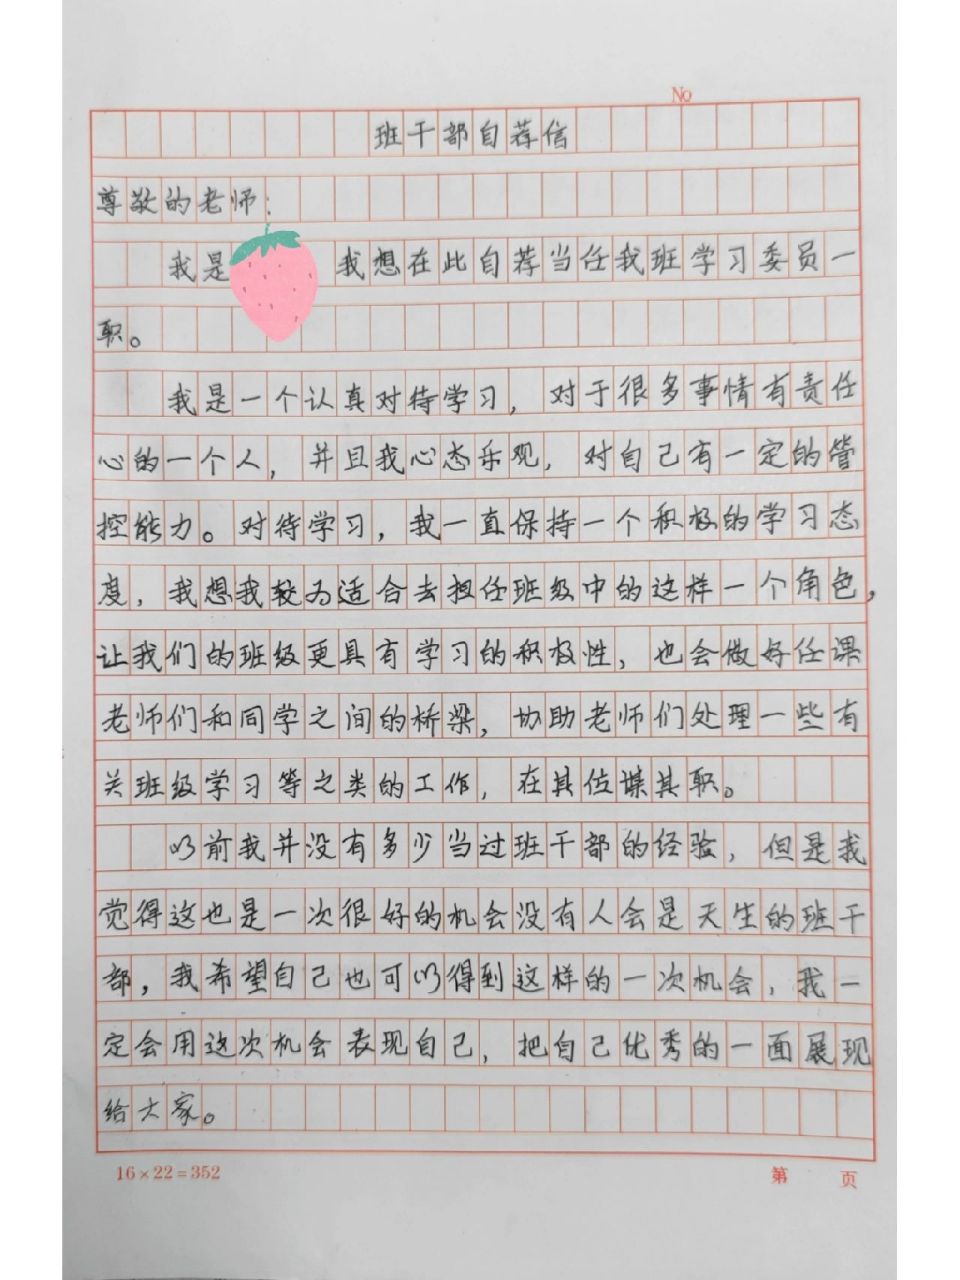 No
班干部自荐信
尊敬的老师：
我是 我想在此自荐当任我班学习委员一
职。
我是一个认真对待学习，对于很多事情有责任
心的一个人，并且我心态乐观，对自己有一定的管
控能力。对待学习，我一直保持一个积极的学习态
度，我想我较为适合去担任班级中的这样一个角色，
让我们的班级更具有学习的积极性，也会做好任课
老师们和同学之间的桥梁，协助老师们处理一些有
关班级学习等之类的工作，在其位谋其职。
以前我并没有多少当过班干部的经验，但是我
觉得这也是一次很好的机会没有人会是天生的班干
部，我希望自己也可以得到这样的一次机会，我一
定会用这次机会表现自己，把自己优秀的一面展现
给大家。
16×22=352 第 页